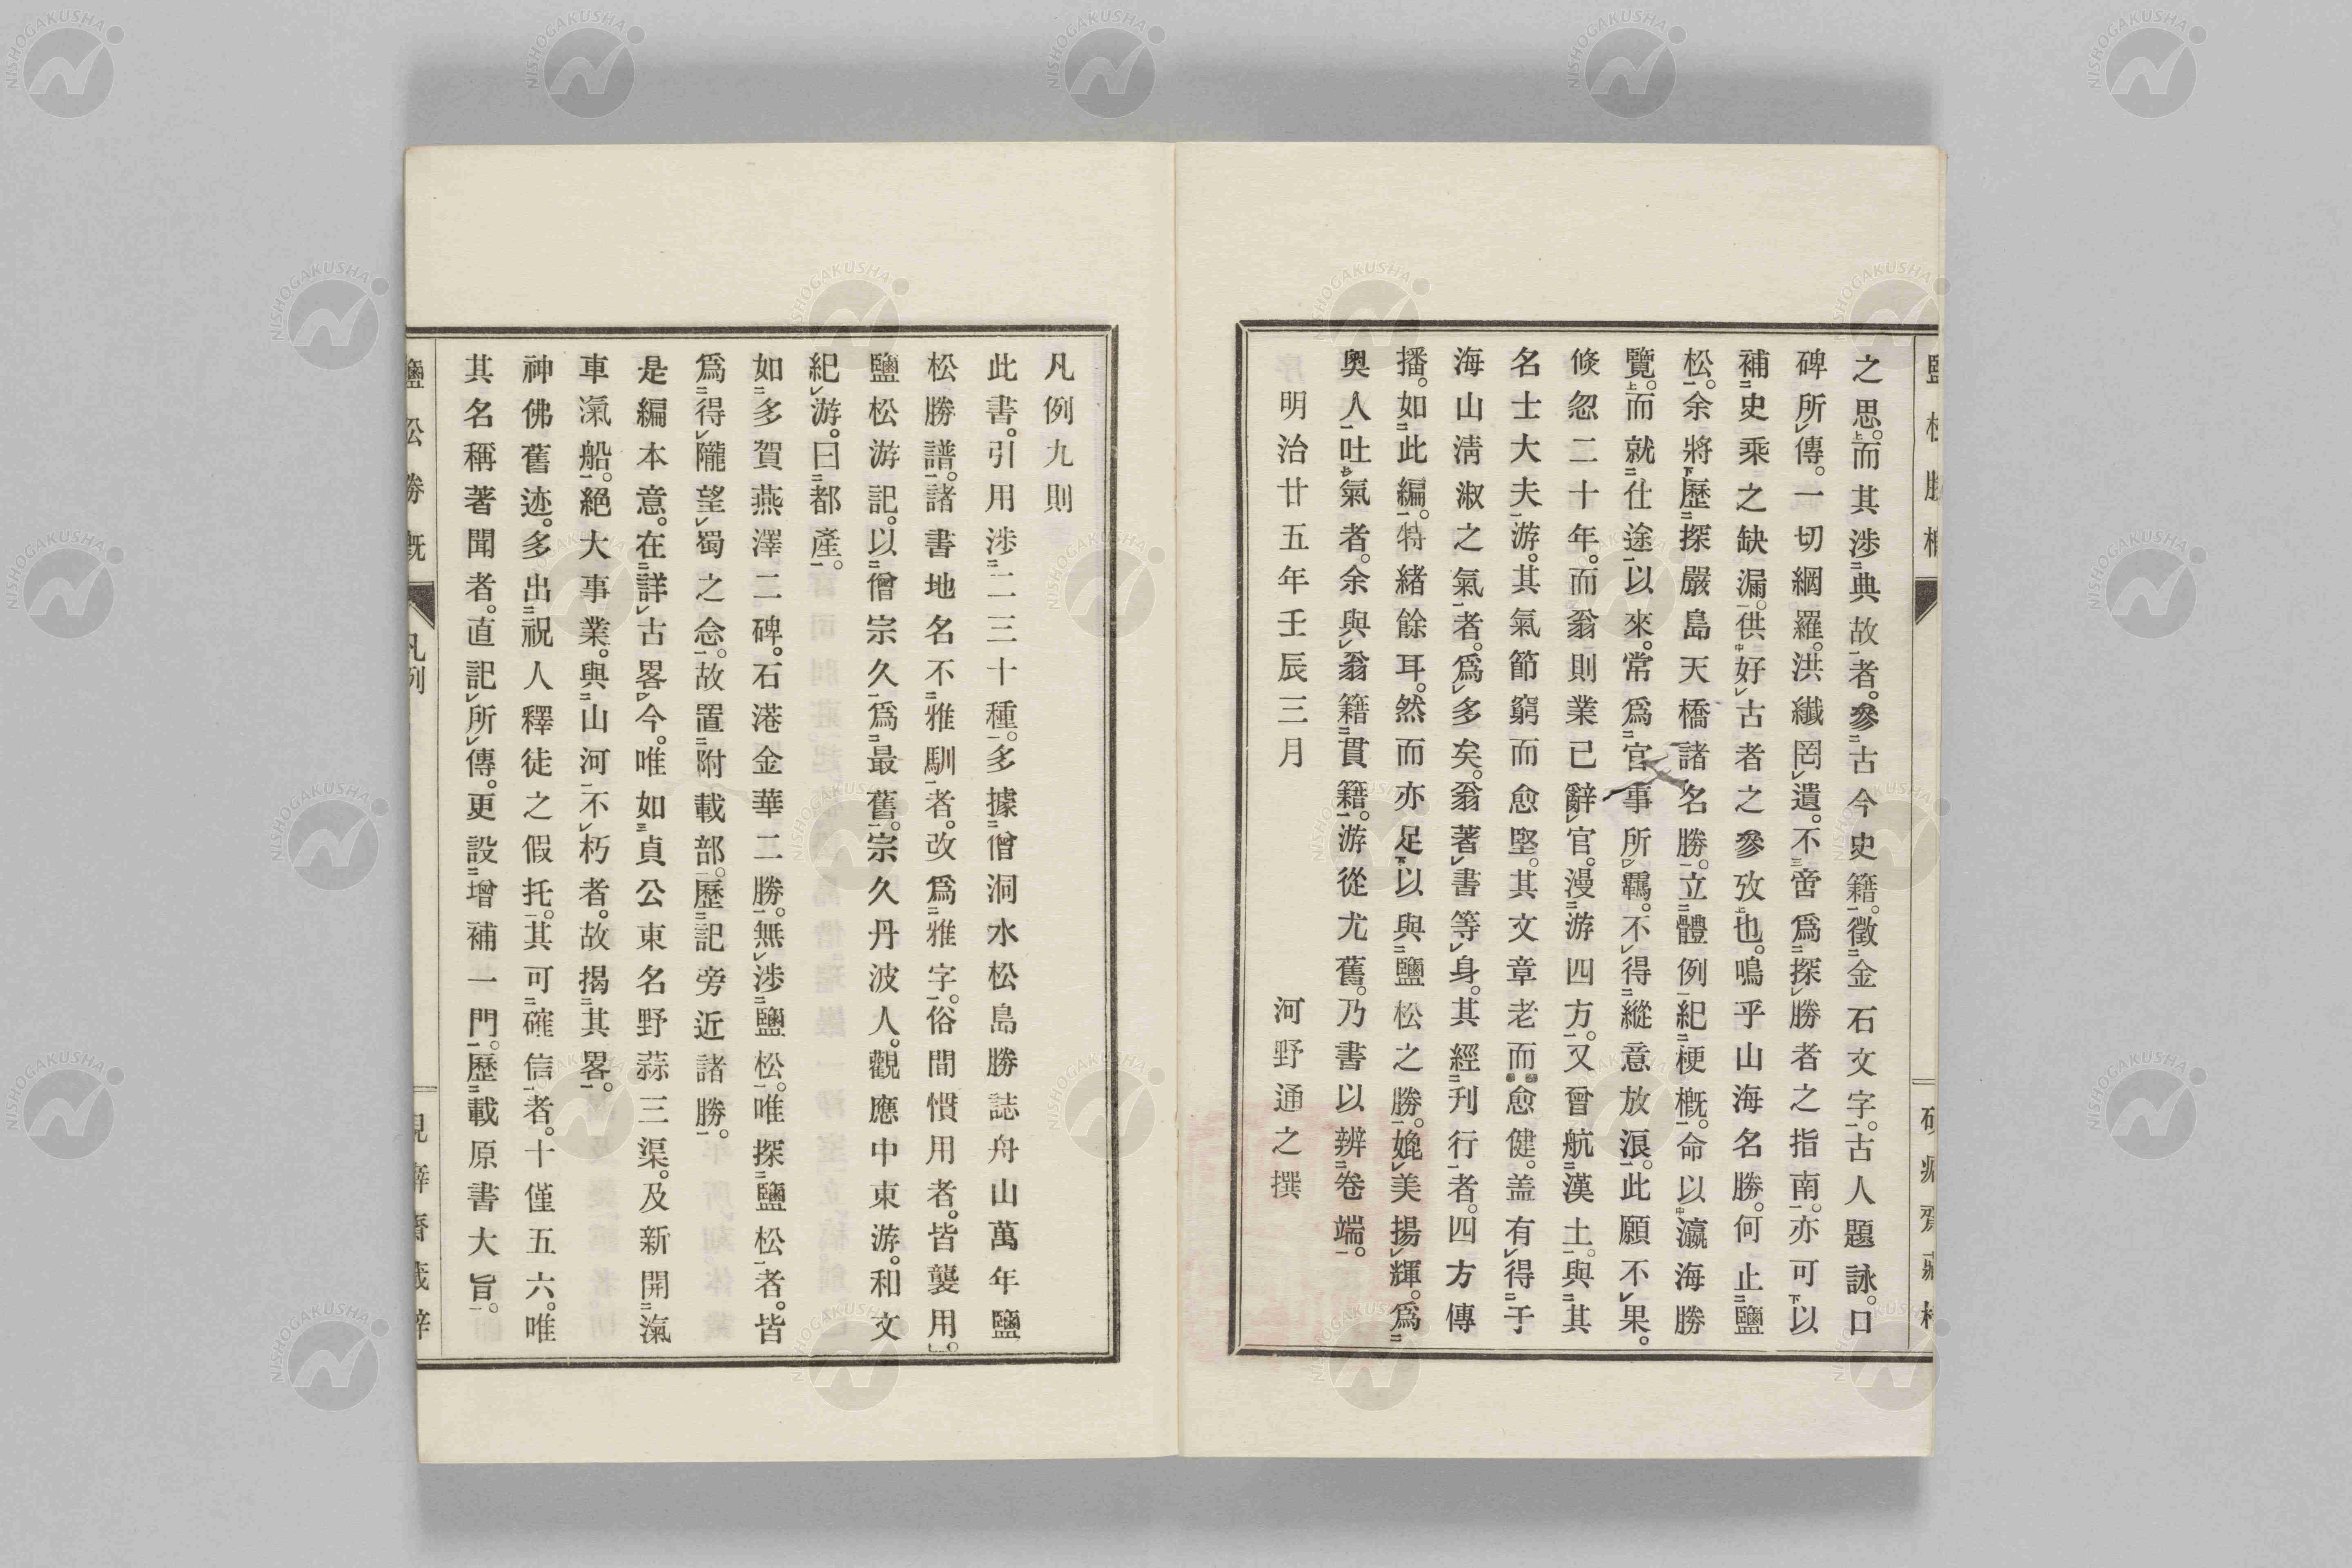 之思。而其渉典故者。參古今史籍。徵金石文字。古人題詠。口
碑所傳。一切網羅。洪纎罔遺。不啻爲探勝者之指南。亦可以
補史乘之缺漏。供好古者之參攷也。鳴乎山海名勝。何止鹽
松。余將歷探嚴島天橋諸名勝。立體例紀梗槪。命以瀛海勝
覽。而就仕途以來。常爲官事所羈。不得縱意放浪。此願不果。
倐忽二十年。而翁則業已辭官。漫游四方。又曾航漢土。與其
名士大夫游。其氣節窮而愈堅。其文章老而愈健。盖有得于
海山淸淑之氣者。爲多矣。翁著書等身。其經刊行者。四方傳
播。如此編。特緒餘耳。然而亦足以與鹽松之勝。媲美揚輝。爲
奧人吐氣者。余與翁籍貫籍。游從尤舊。乃書以辨卷端。
明治廿五年壬辰三月
河野通之撰
凡例九則
此書。引用渉二三十種。多據僧洞水松島勝誌舟山萬年鹽
松勝譜。諸書地名不雅馴者。改爲雅字。俗間慣用者。皆襲用。
鹽松游記。以僧宗久爲最舊。宗久丹波人。觀應中東游。和文
紀游。曰都產。
如多賀燕澤二碑。石港金華二勝。無渉鹽松。唯探鹽松者。皆
爲得隴望蜀之念。故置附載部。歷記旁近諸勝。
是編本意。在詳古畧今。唯如貞公東名野蒜三渠。及新開滊
車滊船。絕大事業。與山河不朽者。故揭其畧。
神佛舊迹。多出祝人釋徒之假托。其可確信者。十僅五六。唯
其名稱著聞者。直記所傳。更設增補一門。歷載原書大旨。
鹽松勝槪
凡例